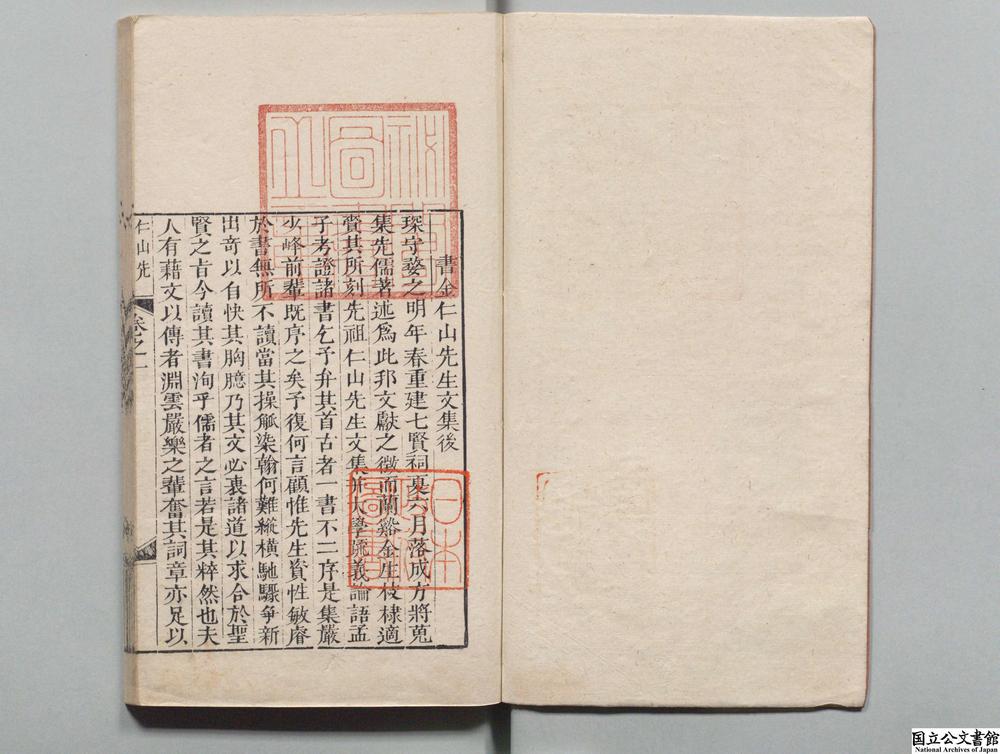 書金仁山先生文集後
琛守婺之明年春重建七賢祠夏六月落成方將蒐
集先儒著述爲此邦文獻之徵而蘭谿金生枝棣適
賫其所刻先祖仁山先生文集并大學疏義論語孟
子考證諸書乞予弁其首古者一書不二序是集嚴
少峰前輩既序之矣予復何言顧惟先生資性敏睿
於書無所不讀當其操觚染翰何難縱橫馳驟爭新
出奇以自快其胸臆乃其文必衷諸道以求合於聖
賢之旨今讀其書洵乎儒者之言若是其粹然也夫
人有藉文以傳者淵雲嚴樂之輩奮其詞章亦足以
仁山先
卷之一
日本
圖書
国立公文書館
National Archives of Japan